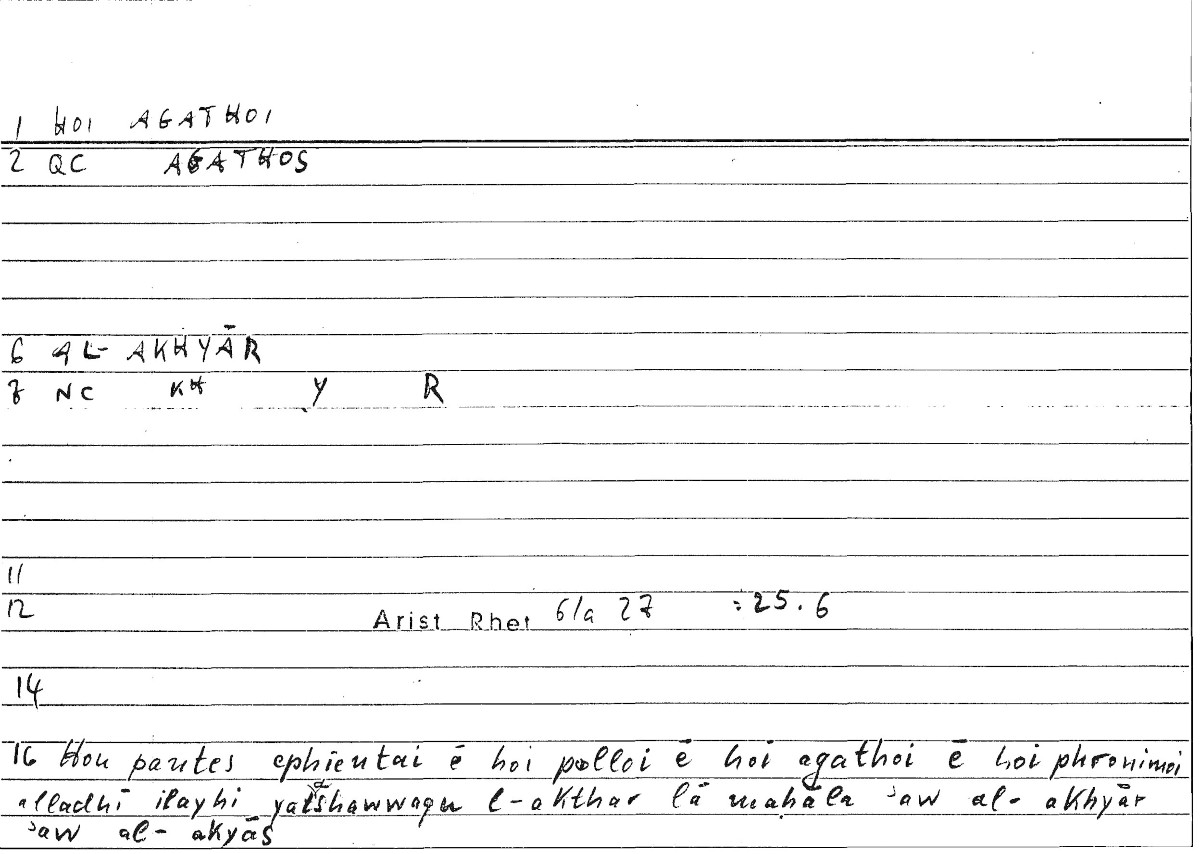 1 HOI AGATHOI
2 QC AGATHOS
6 AL- AKHYĀR
7 NC KH Y R
11
12 Arist Rhet 61a 27 : 25.6
14
16 Hou pantes ephientai ē hoi polloi ē hoi agathoi ē hoi phronimoi
alladhī ilayhi yatashawwaqu l-akthar lā maḥāla ʾaw al- akhyār
ʾaw al- akyās